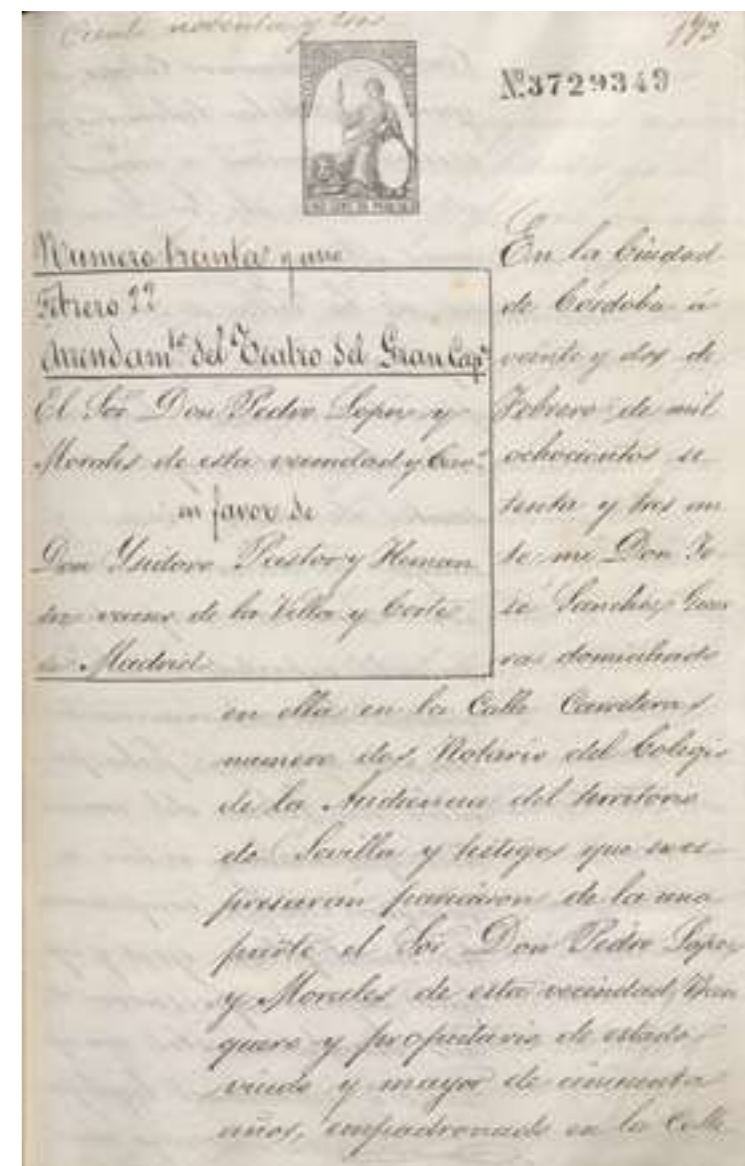 Ciento noventa y tres
193
Nº 3729349
Numero treinta y uno
Febrero 22
Arrendamto del Teatro del Gran Capn
El Sor Don Pedro Lopez y
Morales de esta vecindad y
en favor de
Don Ysidoro Pastor y Hernan
dez vecino de la Villa y Corte
de Madrid
En la Ciudad
de Córdoba á
veinte y dos de
Febrero de mil
ochocientos se
tenta y tres an
te mi Don Jo
sé Sanchez Guer
ra domiciliado
en ella en la Calle Carreteras
numero dos, Notario del Colegio
de la Audiencia del territorio
de Sevilla y testigos que se es
presarán parecieron de la una
parte el Sor Don Pedro Lopez
y Morales de esta vecindad, Ban
quero y propietario de estado
viudo y mayor de cincuenta
años, empadronado en la Calle